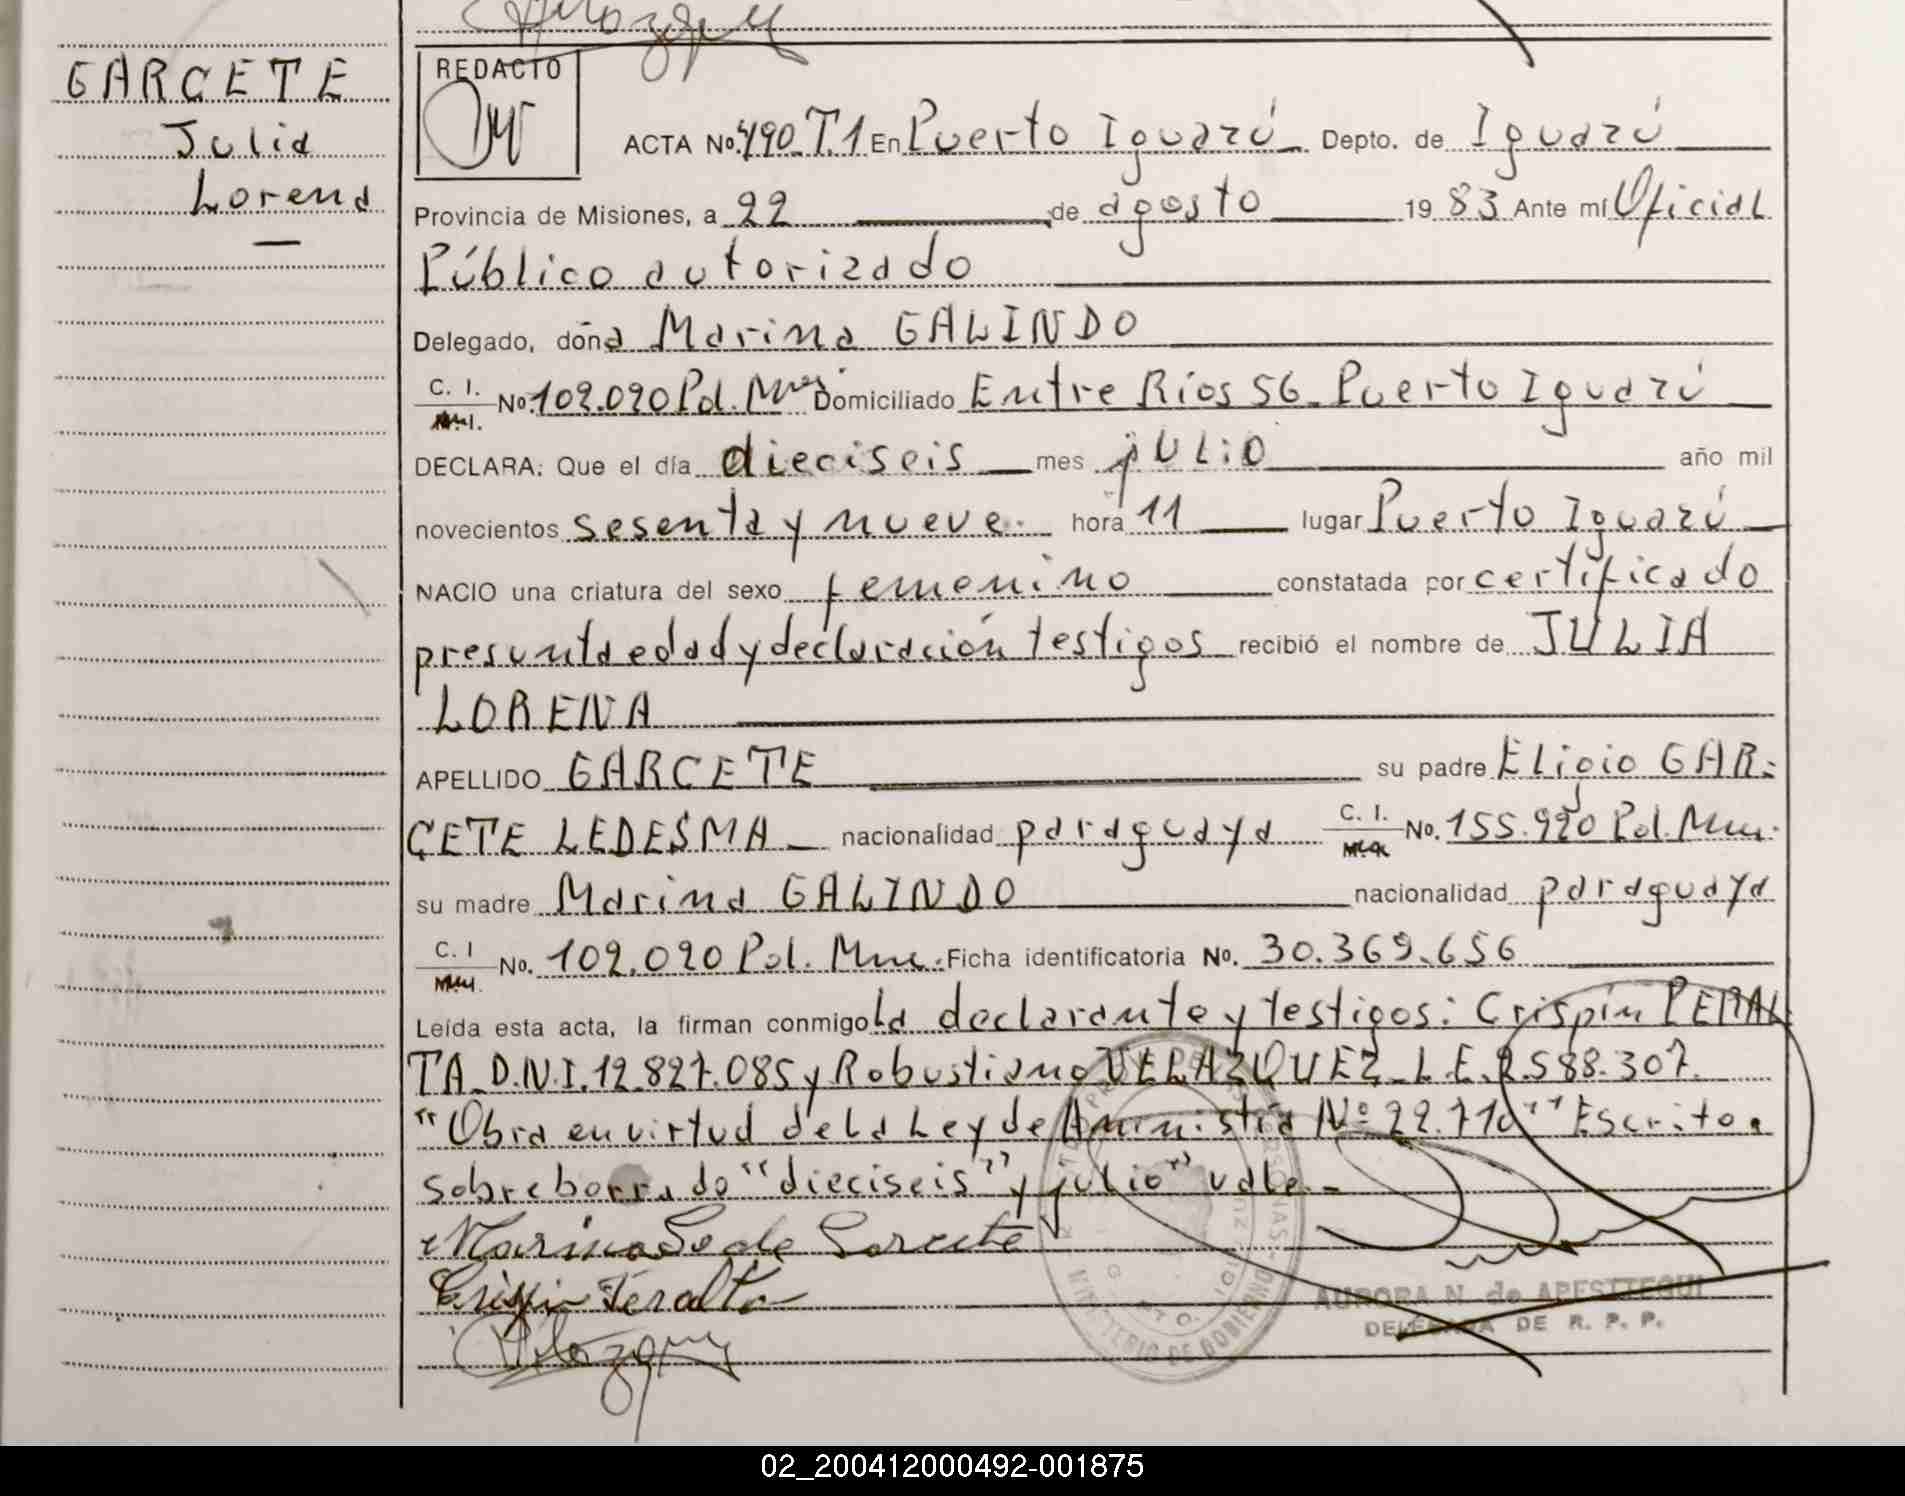 GARCETE
Julia
Lorena
REDACTO
ACTA No. 490 T.1 En Puerto Iguazú Depto. de Iguazú
Provincia de Misiones, a 22 de agosto 1983 Ante mí Oficial
Público autorizado
Delegado, doña Marina GALINDO
C. I. No. 102.020 Pol. Mnes. Domiciliado Entre Ríos 56 Puerto Iguazú
DECLARA: Que el día dieciseis mes julio año mil
novecientos sesenta y nueve. hora 11 lugar Puerto Iguazú
NACIO una criatura del sexo femenino constatada por certificado
presunta edad y declaración testigos recibió el nombre de JULIA
LORENA
APELLIDO GARCETE su padre Eligio GAR-
CETE LEDESMA nacionalidad paraguaya C. I. No. 155.920 Pol. Mnes.
su madre Marina GALINDO nacionalidad paraguaya
C. I No. 102.020 Pol. Mnes. Ficha identificatoria No. 30.369.656
Leída esta acta, la firman conmigo La declarante y testigos: Crispín PERAL
TA D.N.I. 12.827.085 y Robustiano VELAZQUEZ L.E. 2.588.307.
"Obra en virtud de la Ley de Aministía Nº 22.710" Escrito
sobreborrado "dieciseis" y julio" vale.-
Marina G de Garcete
Crispin Peralta
MINISTERIO DE GOBIERNO
AURORA N. de APESTTEGUI
DELEGADA DE R. P. P.
02_200412000492-001875